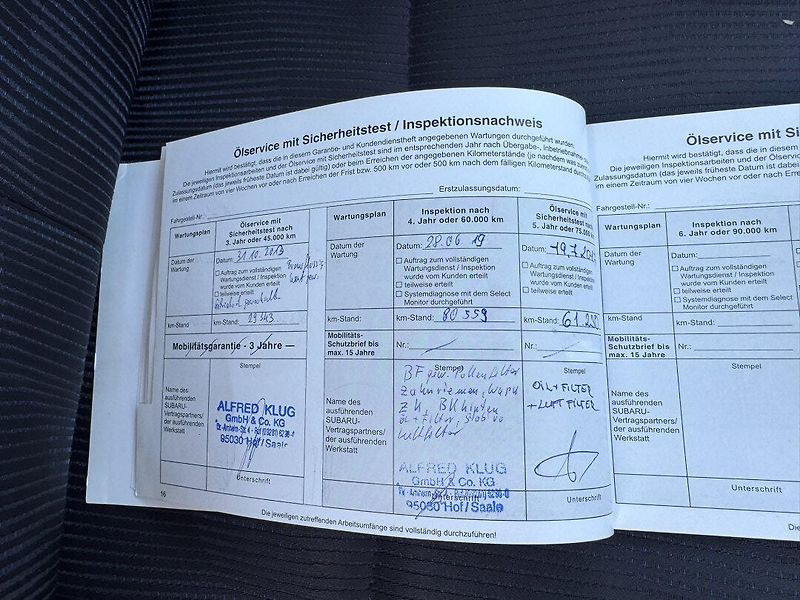 Ölservice mit Sicherheitstest / Inspektionsnachweis
Hiermit wird bestätigt, dass die in diesem Garantie- und Kundendienstheft angegebenen Wartungen durchgeführt wurden.
Die jeweiligen Inspektionsarbeiten und der Ölservice mit Sicherheitstest sind im entsprechenden Jahr nach Übergabe-, Inbetriebnahme-
Zulassungsdatum (das jeweils früheste Datum ist dabei gültig) oder beim Erreichen der angegebenen Kilometerstände (je nachdem was
im einem Zeitraum von vier Wochen vor oder nach Erreichen der Frist bzw. 500 km vor oder 500 km nach dem fälligen Kilometerstand
Erstzulassungsdatum:
Fahrgestell-Nr.:
Wartungsplan
Ölservice mit
Sicherheitstest nach
3. Jahr oder 45.000 km
Datum der
Wartung
Datum: 31.10.2013
Auftrag zum vollständigen
Wartungsdienst / Inspektion
wurde vom Kunden erteilt
teilweise erteilt
km-Stand
km-Stand: 29343
Mobilitätsgarantie - 3 Jahre
Stempel
Name des
ausführenden
SUBARU-
Vertragspartners/
der ausführenden
Werkstatt
ALFRED KLUG
GmbH & Co. KG
95030 Hof/Saale
Unterschrift
16
Wartungsplan
Inspektion nach
4. Jahr oder 60.000 km
Datum der
Wartung
Datum: 28.06 19
Auftrag zum vollständigen
Wartungsdienst / Inspektion
wurde vom Kunden erteilt
teilweise erteilt
Systemdiagnose mit dem Select
Monitor durchgeführt
km-Stand
km-Stand: 80359
Mobilitäts-
Schutzbrief bis
max. 15 Jahre
Nr.:
Stempel
BF gew. Pollenfilter
Zahnriemen, Wapu
Luftfilter
Name des
ausführenden
SUBARU-
Vertragspartners/
der ausführenden
Werkstatt
ALFRED KLUG
GmbH & Co. KG
95030 Hof/Saale
Unterschrift
Ölservice mit
Sicherheitstest nach
5. Jahr oder 75.000
Datum:
Auftrag zum vollständigen
Wartungsdienst / Inspektion
wurde vom Kunden erteilt
teilweise erteilt
km-Stand:
Nr.:
Stempel
OIL + FILTER
+ LUFTFILTER
Unterschrift
Die jeweiligen zutreffenden Arbeitsumfänge sind vollständig durchzuführen!
Ölservice mit
Hiermit wird bestätigt, dass die in
Die jeweiligen Inspektionsarbeiten und der Ölservice
Zulassungsdatum (das jeweils früheste Datum ist
im einem Zeitraum von vier Wochen vor oder nach Erreichen
Fahrgestell-Nr.:
Wartungsplan
Inspektion nach
6. Jahr oder 90.000 km
Datum der
Wartung
Datum:
Auftrag zum vollständigen
Wartungsdienst / Inspektion
wurde vom Kunden erteilt
teilweise erteilt
Systemdiagnose mit dem Select
Monitor durchgeführt
km-Stand
km-Stand:
Mobilitäts-
Schutzbrief bis
max. 15 Jahre
Nr.:
Stempel
Name des
ausführenden
SUBARU-
Vertragspartners/
der ausführenden
Werkstatt
Unterschrift
Die jeweiligen